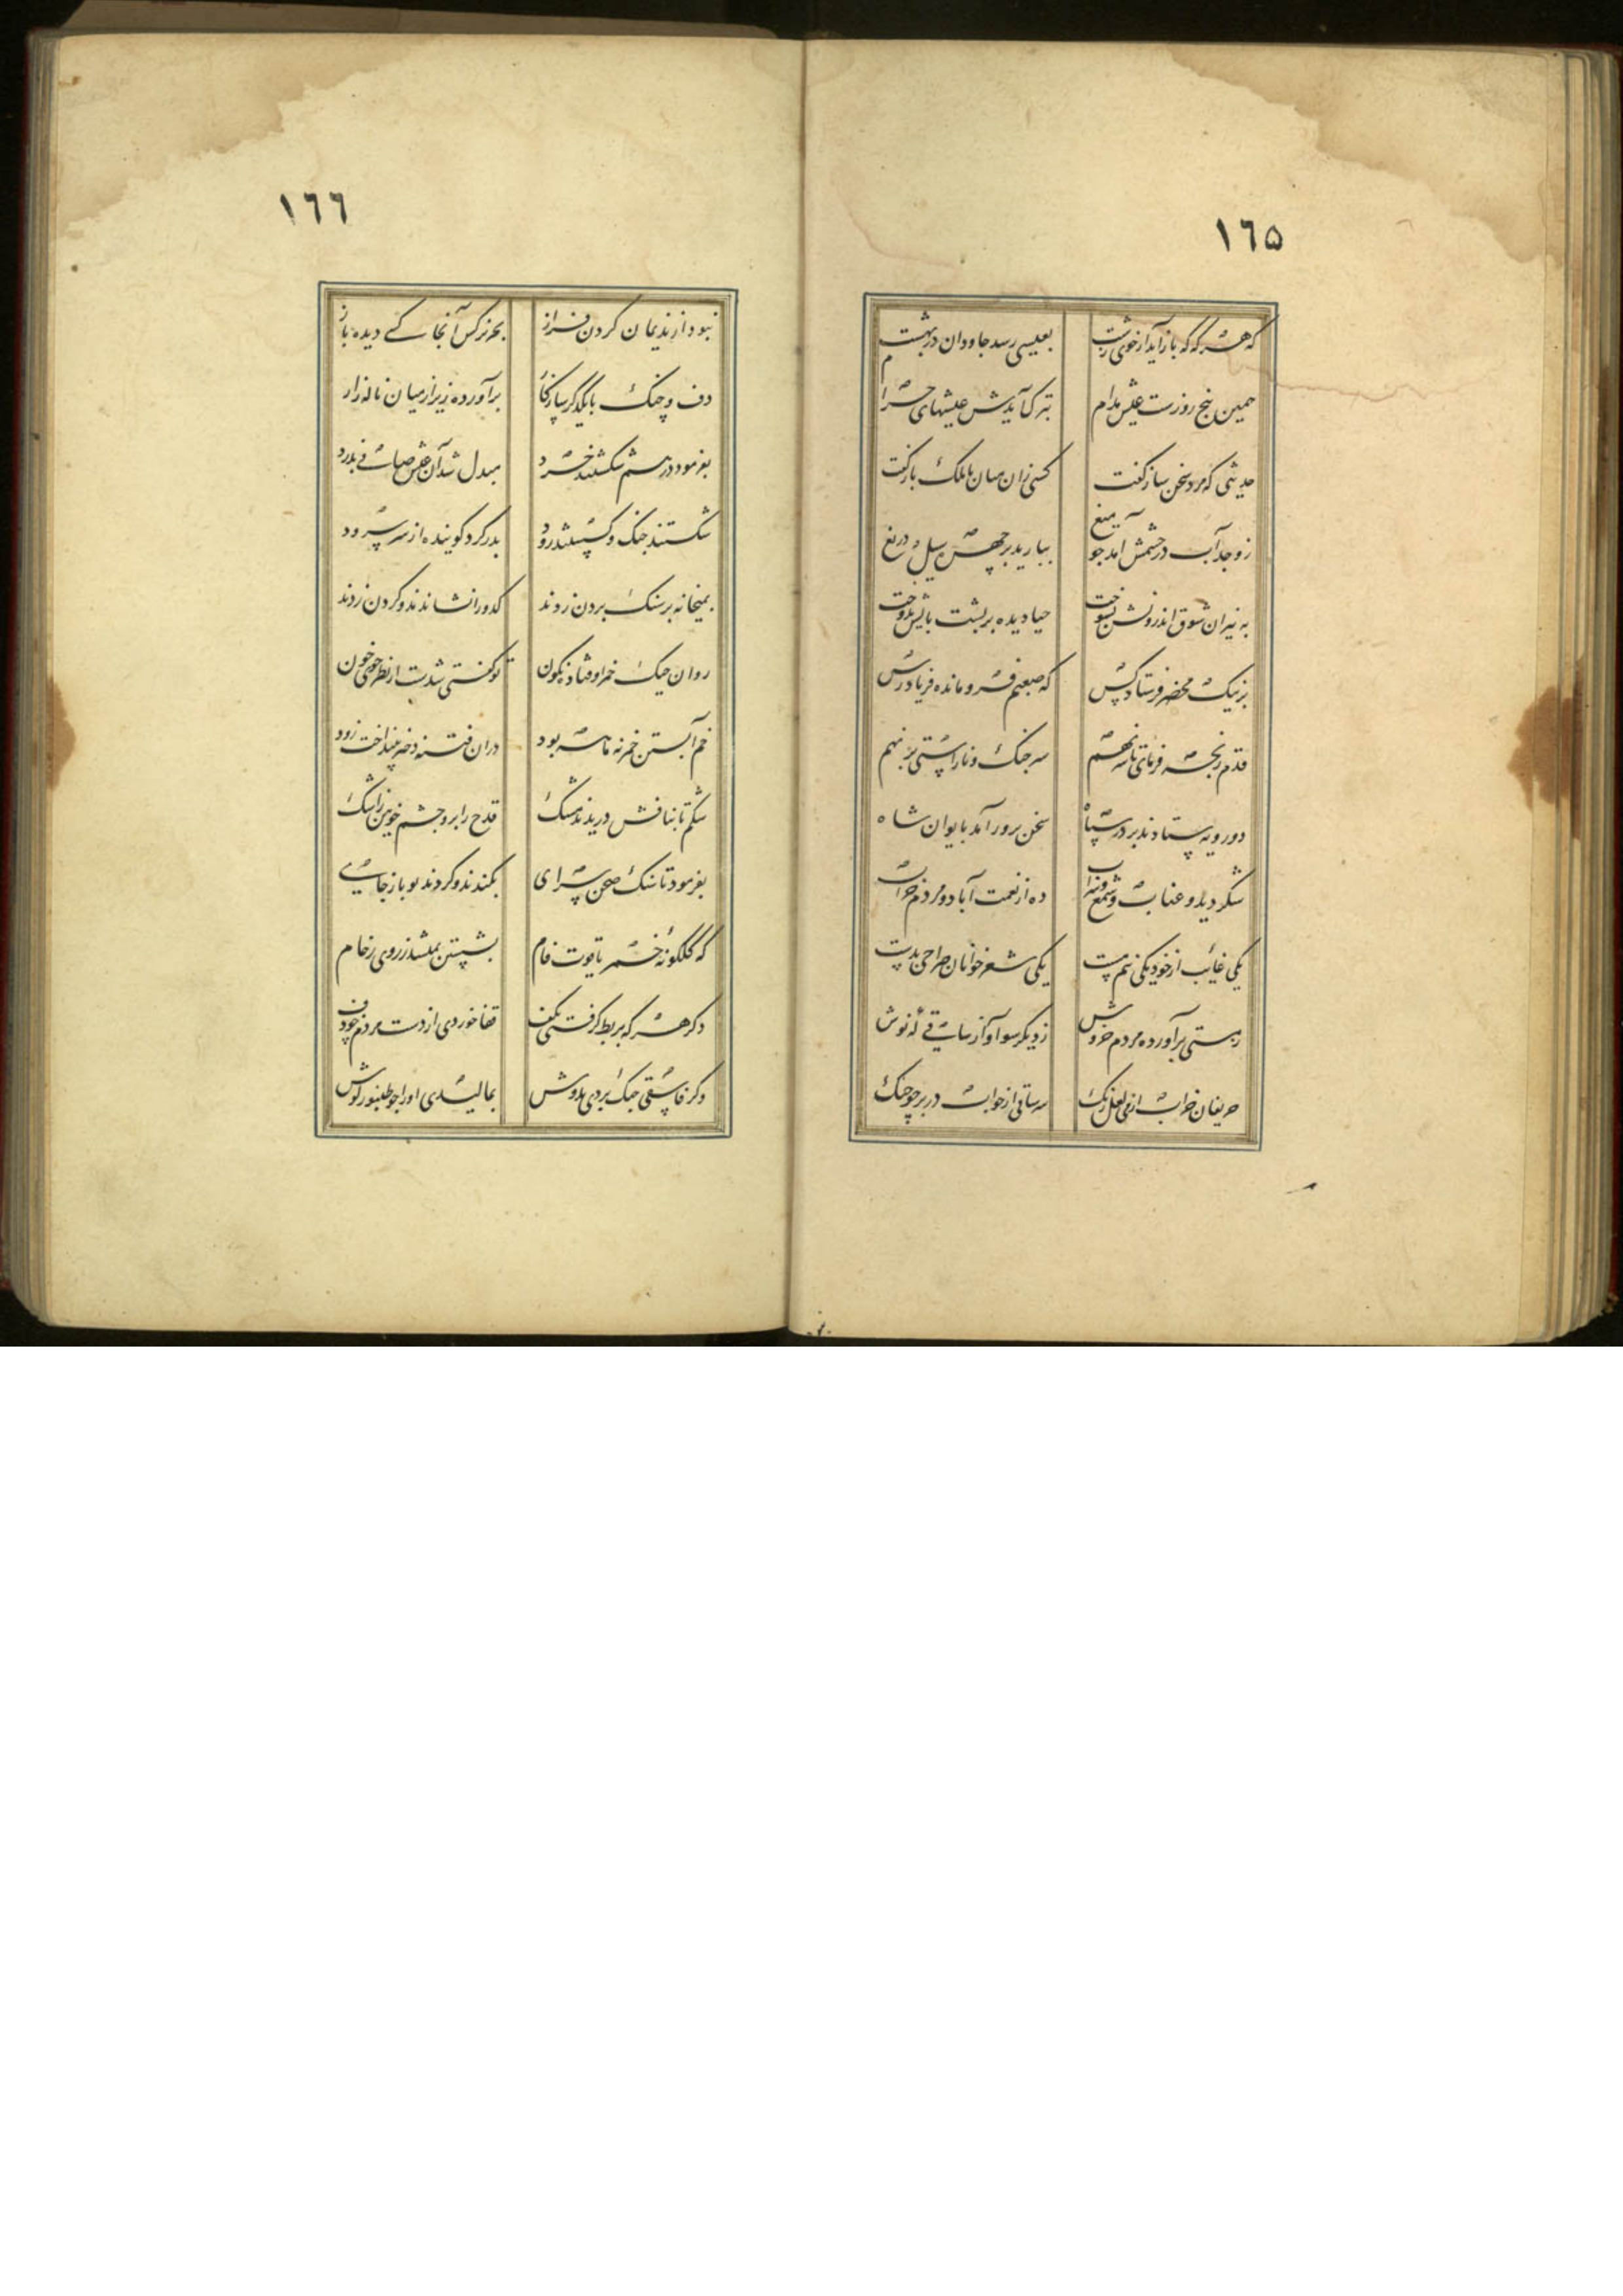 ١٦٥
که هر که که باز آید از خوی زشت بعیسی رسد جاودان در بهشت
همین پنج روزست عیش مدام بترک آیدش عیشهای حرام
حدیثی که مرد سخن ساز گفت کسی زان میان با ملک باز گفت
ز وجد آب در چشمش آمد چو میغ ببارید بر چهره سیل دریغ
به نیران شوق اندرونش بسوخت حیا دیده بر پشت پایش بدوخت
بر نیک محضر فرستاد کس که صبعم فرومانده فریادرس
قدم رنجه فرمای تا سر نهم سر جنک و ناراستی بر نهم
دو رویه ستادند بر در سپاه سخن پرور آمد بایوان شاه
شکر دید و عناب و شمع و شراب ده از نعمت آباد و مردم خراب
یکی غائب از خود یکی نیم مست یکی شعر خوانان صراحی بدست
ز مستی برآورده مردم خروش ز دیکر سو آواز ساقی که نوش
حریفان خراب از می لعل رنک سر ساقی از خواب در بر چو چنک
١٦٦
نبود از ندیمان کردن فراز بجز نرکس آنجا کسی دیده باز
دف و چنک با یکدکر سازکار برآورده زیر از میان ناله زار
بفرمود درهم شکستند خرد مبدل شد آن عیش صافی بدرد
شکستند چنک و کسستند رود بدر کرد کوینده از سر سرود
بمیخانه بر سنک بر دن زدند کدو را نشاندند و کردن زدند
روان خمر اوفتاده نکون تو کفتی خون
خم آبستن خمر نه ماهه بود دران فتنه دختر بینداخت زود
شکم تا بنافش دریدند مشک قدح را برو چشم خونین ز اشک
بفرمود تا سنک صحن سرای بکندند و کردند نو باز جای
که کلکونهٔ خمر یاقوت فام بشستن نمیشد ز روی رخام
دکر هر که بربط کرفتی بکف قفا خوردی از دست مردم چو دف
وکر فاسقی چنک بردی بدوش بمالیدی او را چو طنبور کوش